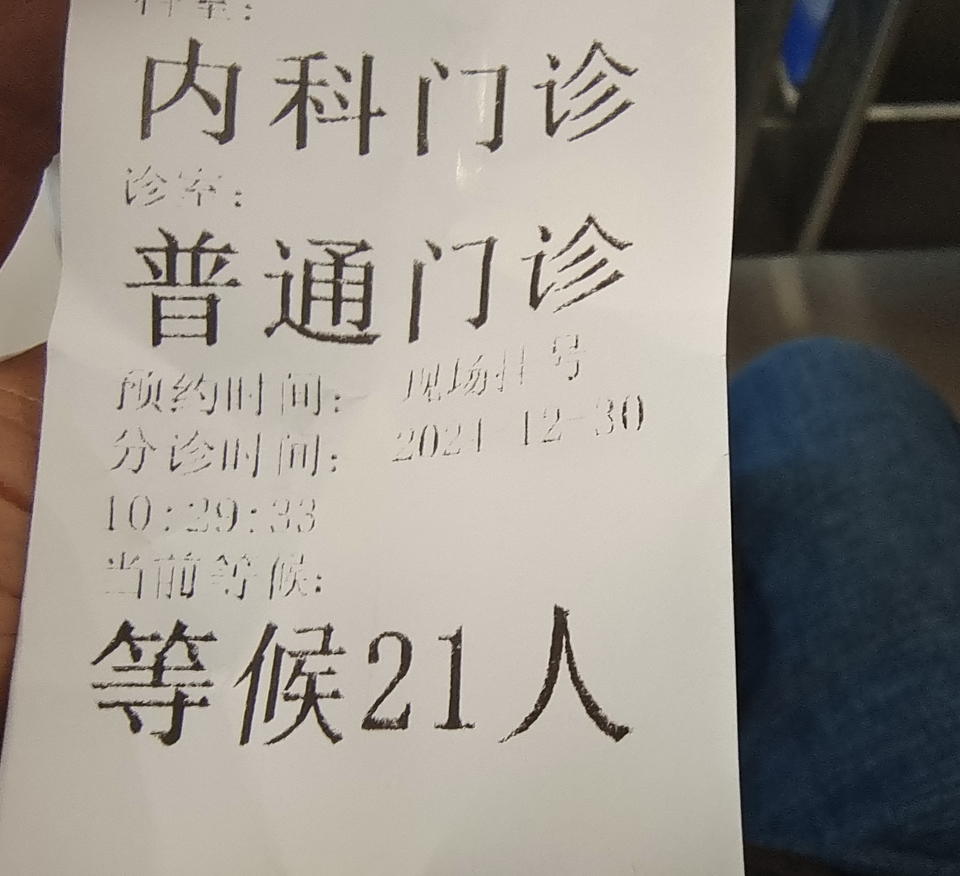 科室:
内科门诊
诊室:
普通门诊
预约时间: 现场挂号
分诊时间: 2024-12-30
10:29:33
当前等候:
等候21人